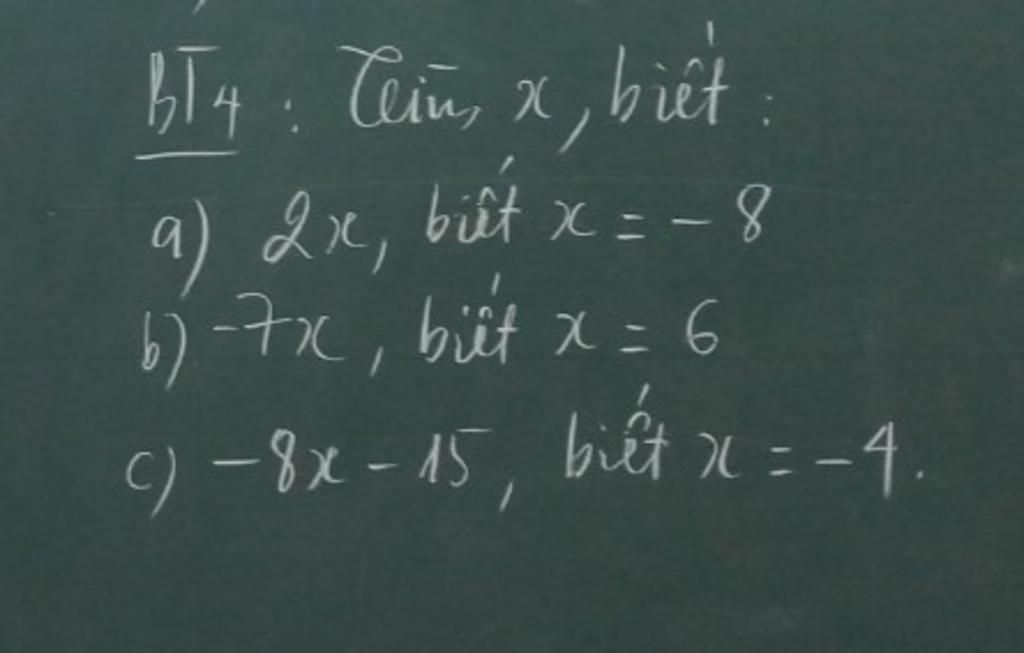 BT4 : Tìm x, biết :
a) 2x, biết x = - 8
b) -7x, biết x = 6
c) - 8x - 15, biết x = - 4.